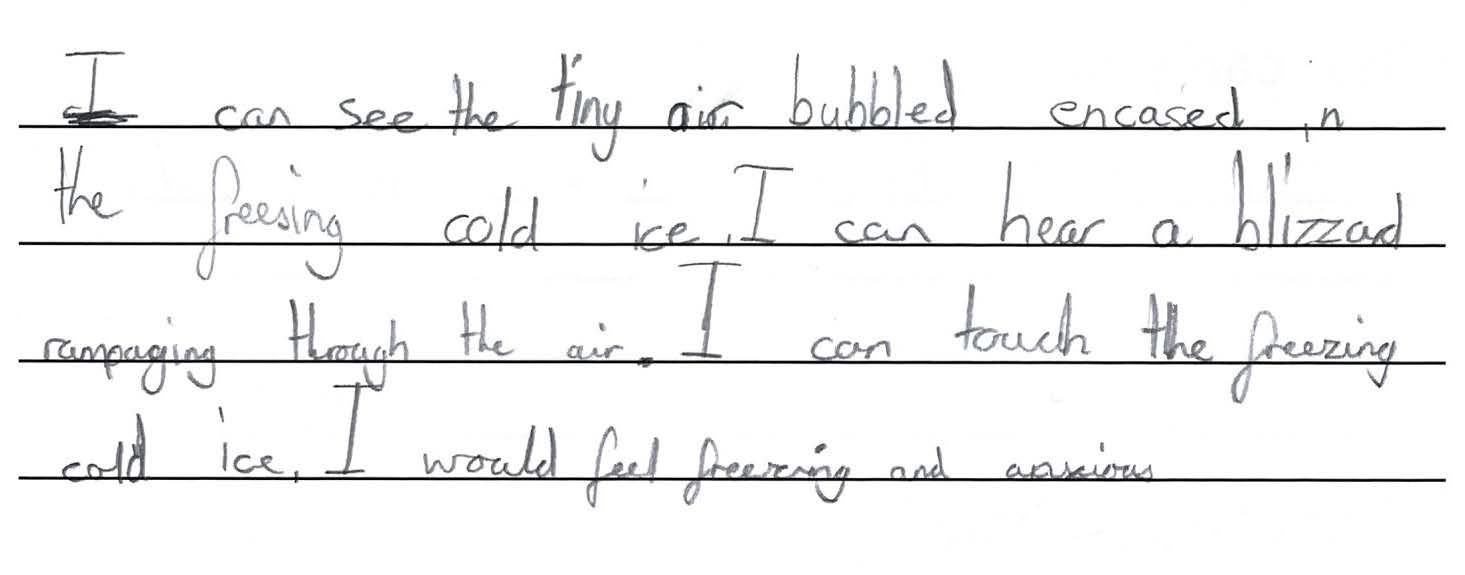 I can see the tiny air bubbled encased in
the freesing cold ice. I can hear a blizzard
rampaging through the air. I can touch the freezing
cold ice, I would feel freezing and anxious